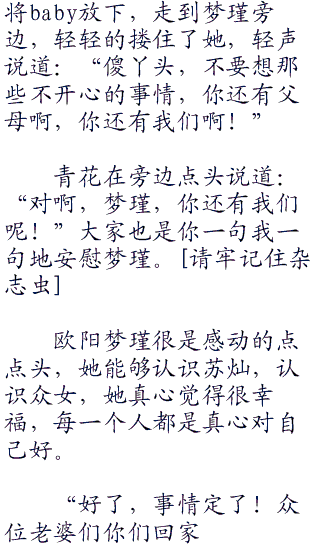 将baby放下，走到梦瑾旁
边，轻轻的搂住了她，轻声
说道：“傻丫头，不要想那
些不开心的事情，你还有父
母啊，你还有我们啊！”
青花在旁边点头说道：
“对啊，梦瑾，你还有我们
呢！”大家也是你一句我一
句地安慰梦瑾。[请牢记住杂
志虫]
欧阳梦瑾很是感动的点
点头，她能够认识苏灿，认
识众女，她真心觉得很幸
福，每一个人都是真心对自
己好。
“好了，事情定了！众
位老婆们你们回家